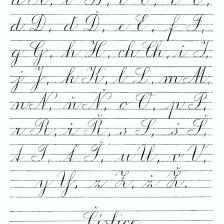 d D, ď Ď, e E, f F,
g G, h H, ch Ch, i I,
j J, k K, l L, m M,
n N, ň Ň, o O, p P,
r R, ř Ř, s S, š Š,
t T, ť Ť, u U, v V,
y Y, z Z, ž Ž.
Číslice